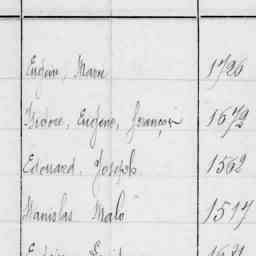 Eugène, Marie 1726
Isidore, Eugène, François 1672
Edouard, Joseph 1562
Stanislas Malo 1517
1621